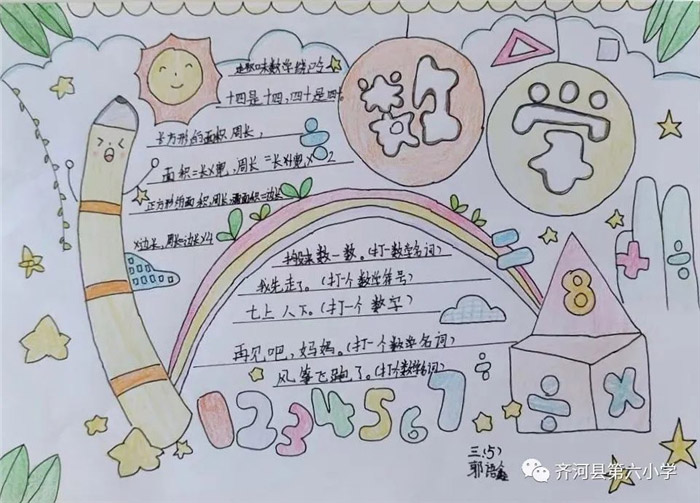 数学
趣味数学绕口令
十四是十四,四十是四十
长方形的面积,周长,
面积=长×宽,周长=长+宽×2
正方形的面积,周长,面积=边长
×边长,周长=边长×4
搬来数一数。(打一数学名词)
我先走了。(打一个数学符号)
七上八下。(打一个数字)
再见吧,妈妈。(打一个数学名词)
风筝飞跑了。(打个数学名词)
8
÷ ×
+ ÷
01234567÷
三(5)
郭语鑫
齐河县第六小学